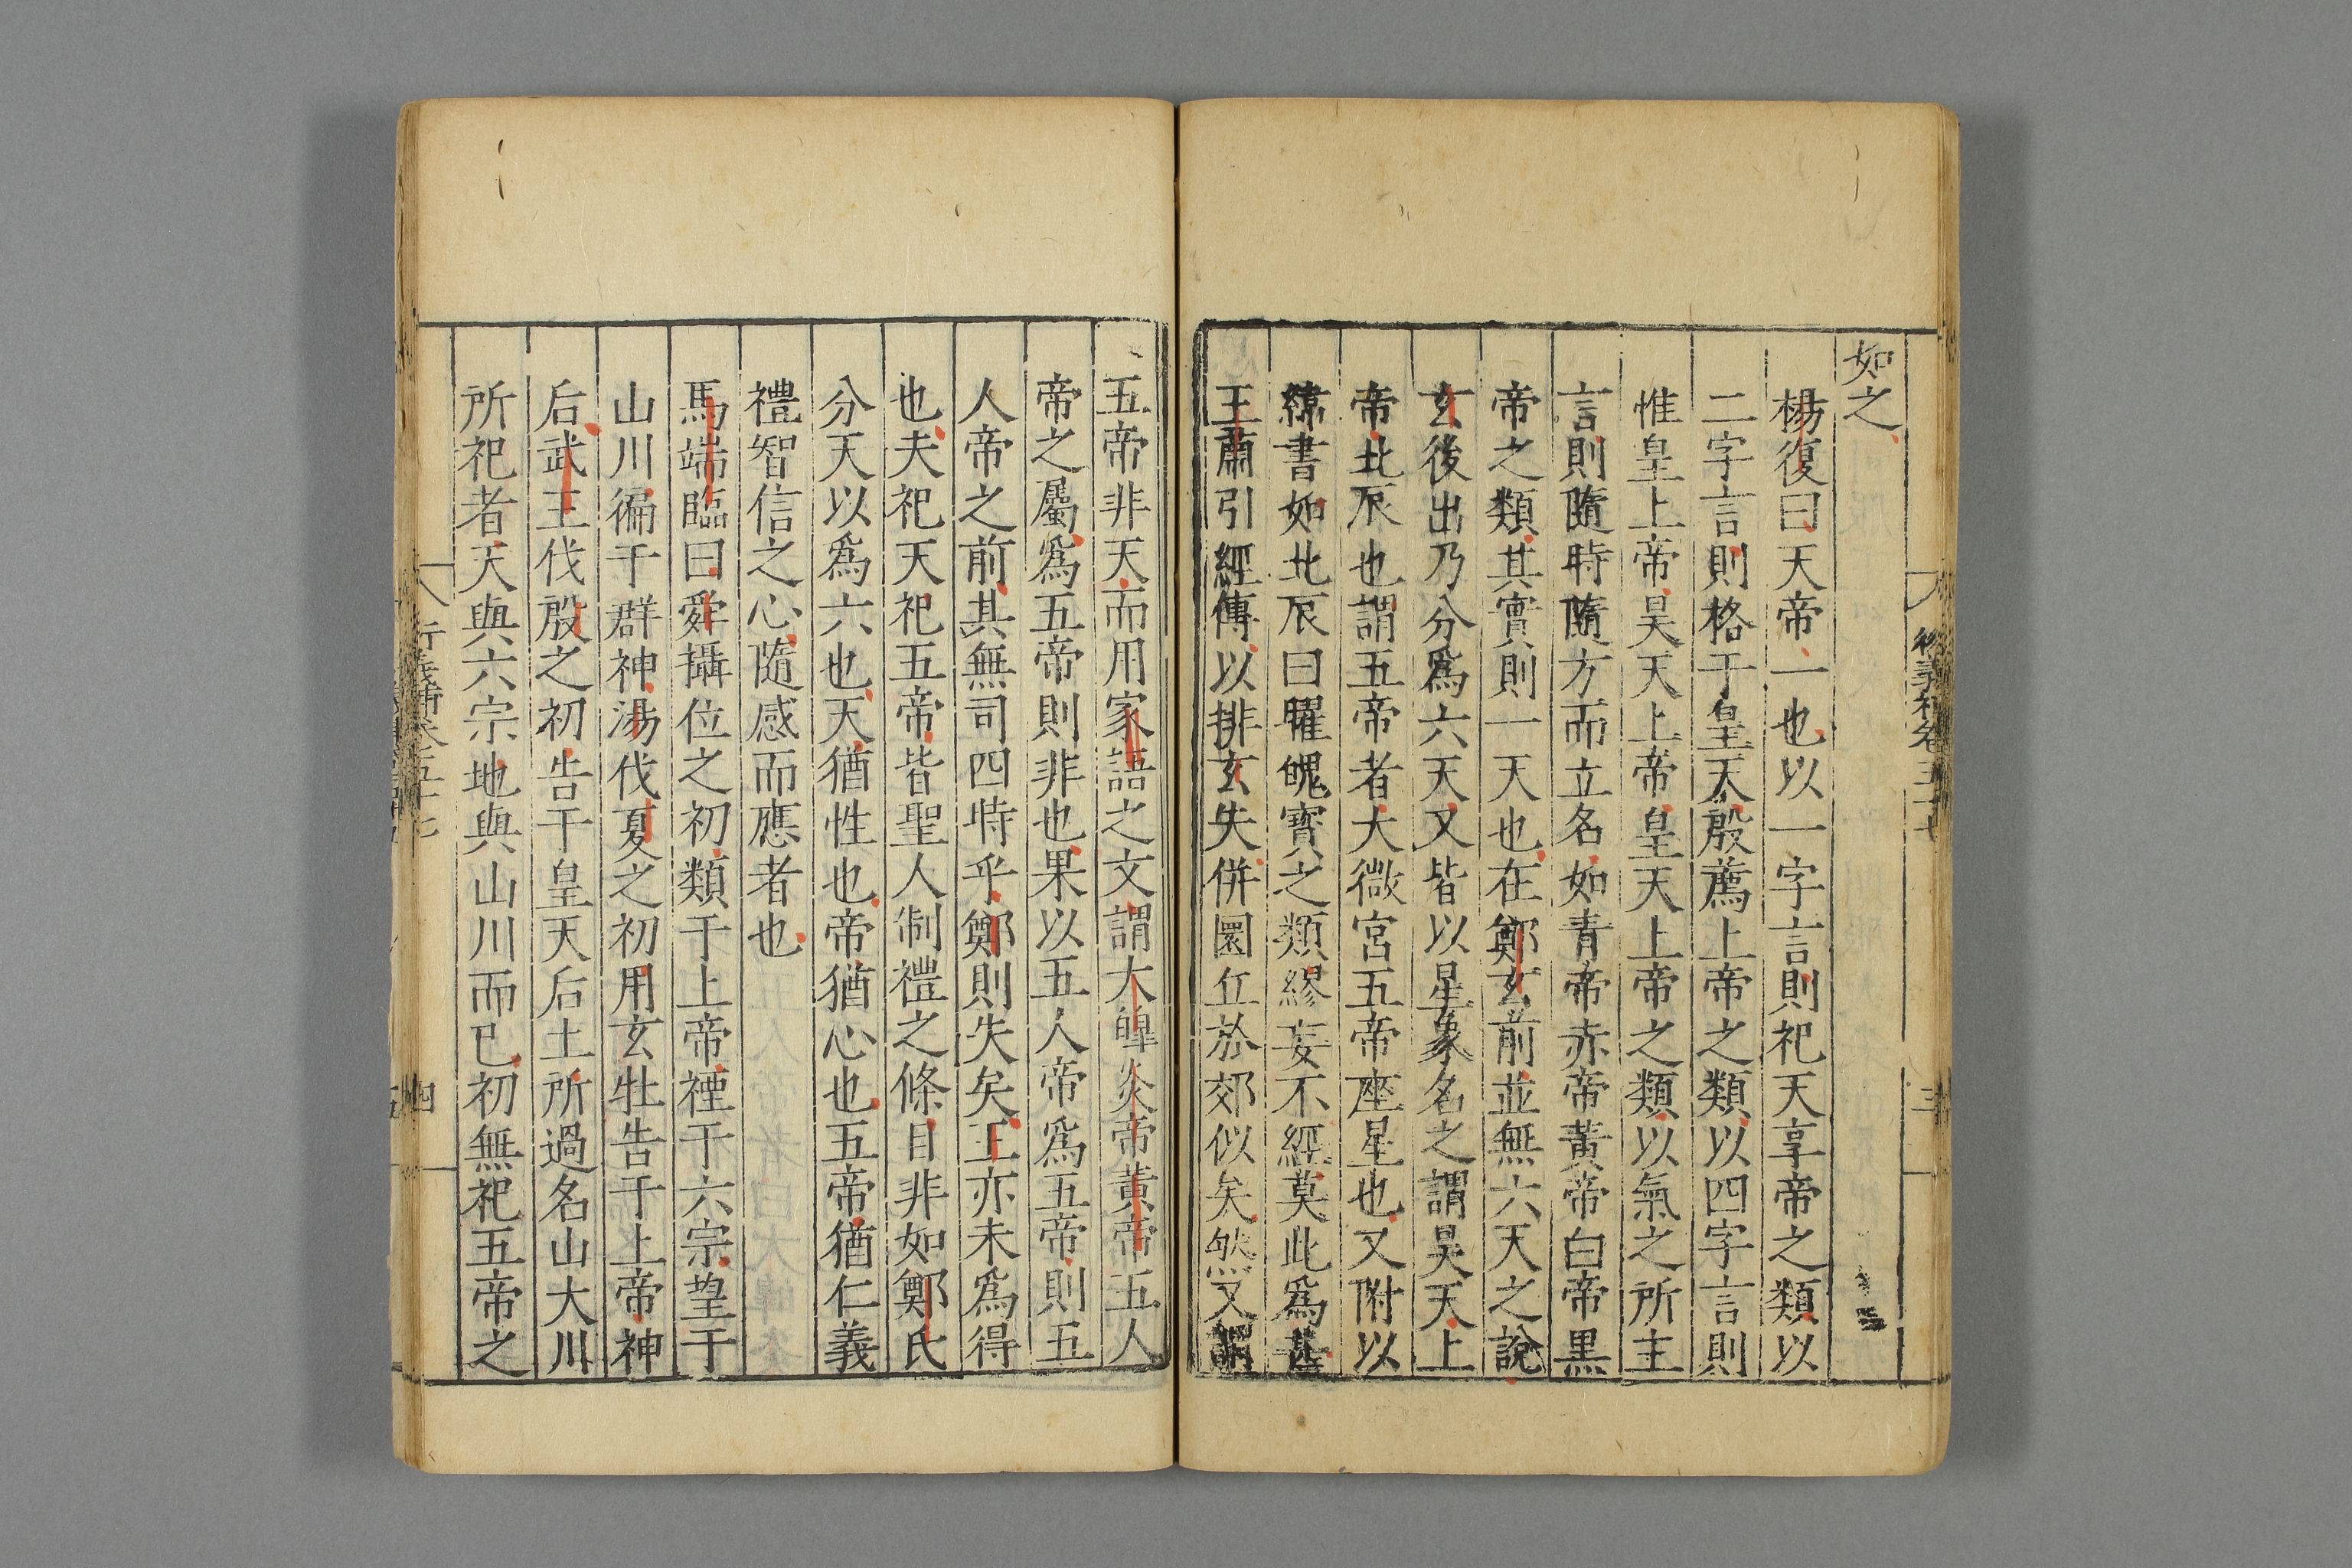 如之
楊復曰天帝一也以一字言則祀天享帝之類以
二字言則格于皇天殷薦上帝之類以四字言則
惟皇上帝昊天上帝皇天上帝之類以氣之所主
言則隨時隨方而立名如青帝赤帝黃帝白帝黑
帝之類其實則一天也在鄭玄前並無六天之說
玄後出乃分爲六天又皆以星象名之謂昊天上
帝北辰也謂五帝者大微宮五帝座星也又附以
緯書如北辰曰曜魄寳之類繆妄不經莫此爲甚
王肅引經傳以排玄失併圜丘於郊似矣然又謂
五帝非天而用家語之文謂大皥炎帝黃帝五人
帝之屬爲五帝則非也果以五人帝爲五帝則五
人帝之前其無司四時乎鄭則失矣王亦未爲得
也夫祀天祀五帝皆聖人制禮之條目非如鄭氏
分天以爲六也天猶性也帝猶心也五帝猶仁義
禮智信之心隨感而應者也
馬端臨曰舜攝位之初類于上帝禋于六宗望于
山川徧于群神湯伐夏之初用玄牡告于上帝神
后武王伐殷之初告于皇天后土所過名山大川
所祀者天與六宗地與山川而已初無祀五帝之
四